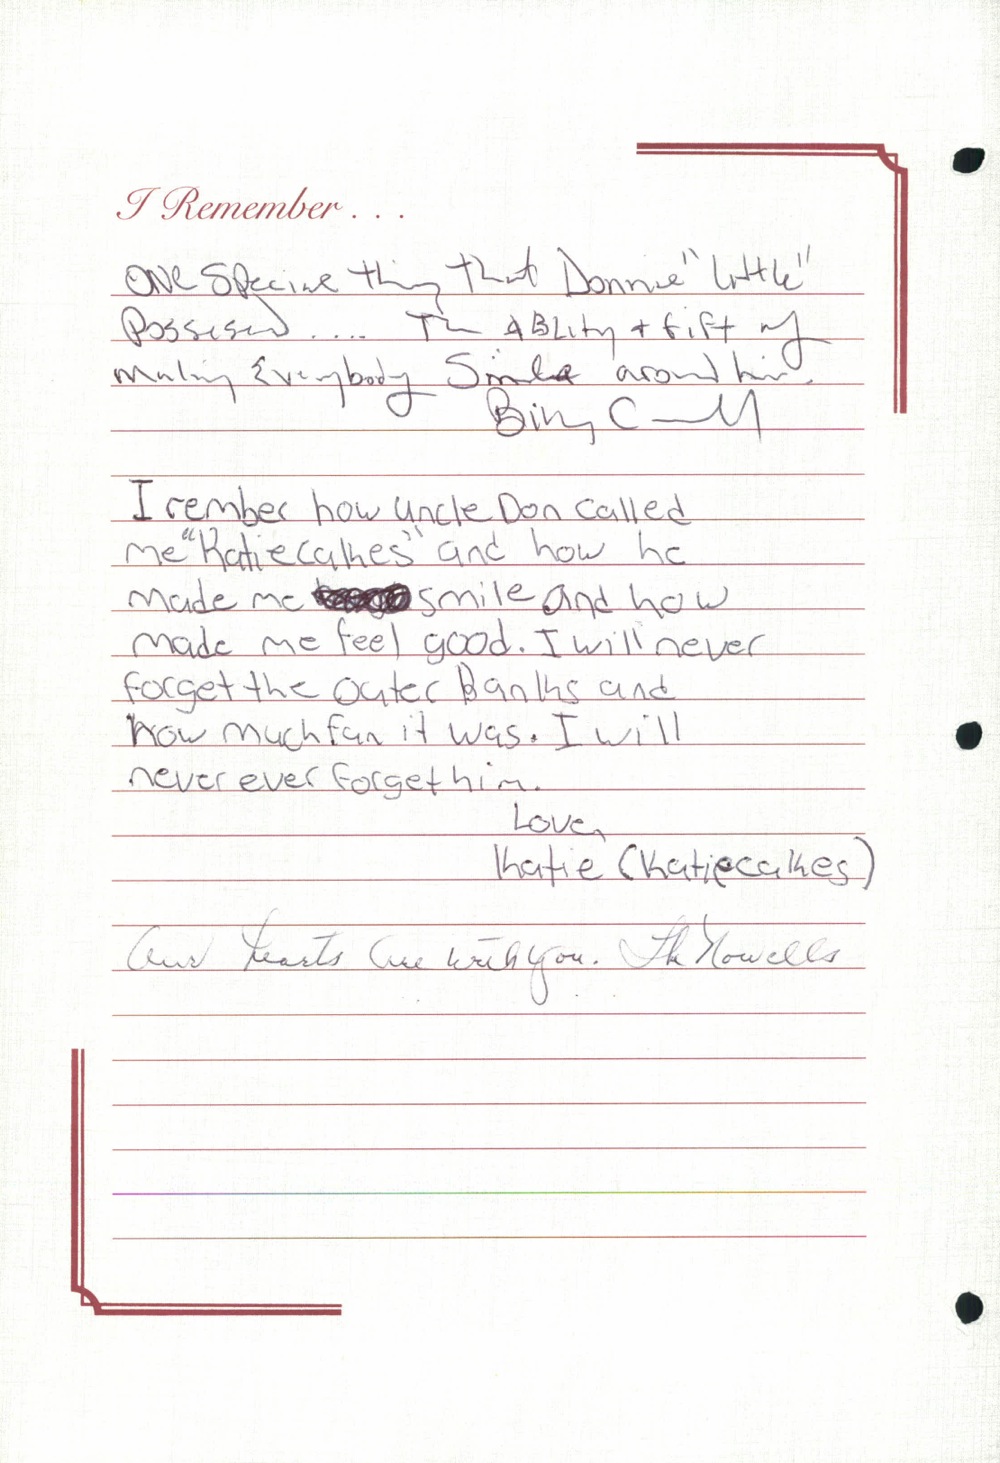 I Remember . . .
ONE Special thing that Donnie "Little"
Possesed .... The ABLity + Gift of
making Everybody Smile around him.
Billy C
I rember how uncle Don called
me "Katiecakes" and how he
made me smile and how
made me feel good. I will never
forget the Outer Banks and
how much fun it was. I will
never ever forget him.
Love,
Katie (Katiecakes)
Our hearts are with you. The Nowells